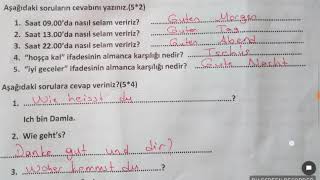 Aşağıdaki soruların cevabını yazınız.(5*2)
1. Saat 09.00'da nasıl selam veririz? Guten Morgen
2. Saat 13.00'da nasıl selam veririz? Guten Tag
3. Saat 22.00'da nasıl selam veririz? Guten Abend
4. "hoşça kal" ifadesinin almanca karşılığı nedir? Tschüs
5. "iyi geceler" ifadesinin almanca karşılığı nedir? Gute Nacht
Aşağıdaki sorulara cevap veriniz?(5*4)
1. Wie heisst du ?
Ich bin Damla.
2. Wie geht's?
Danke gut und dir?
3. Woher kommst du ?